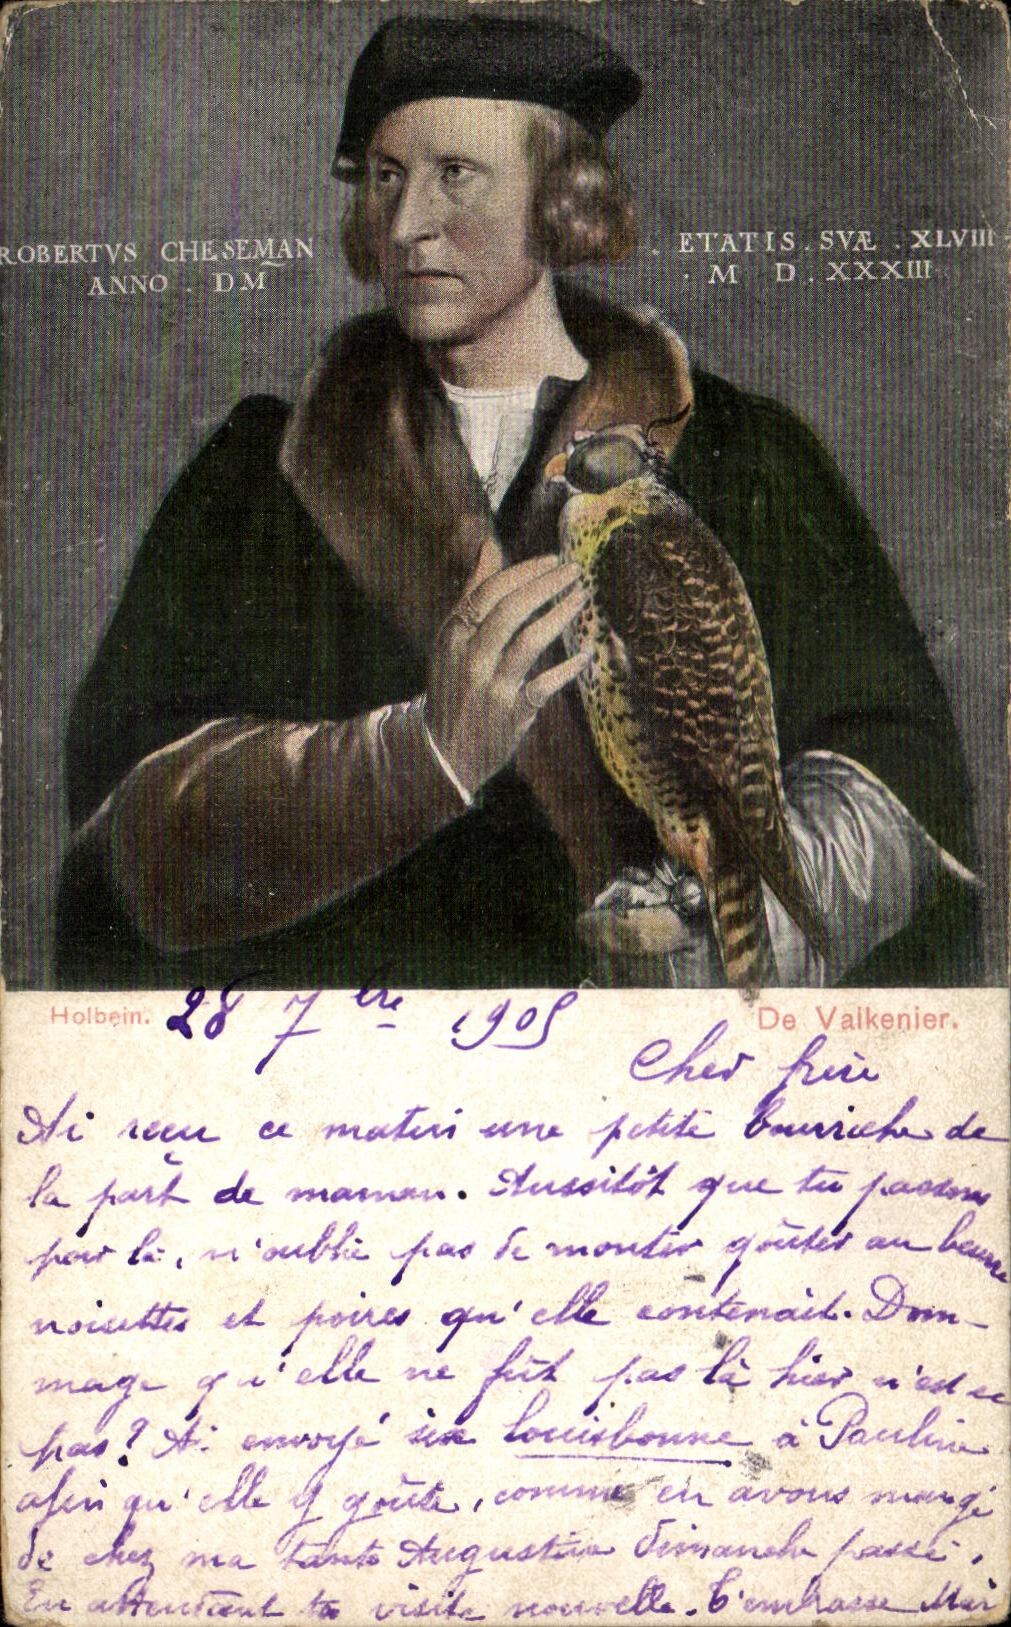 ROBERTVS CHESEMAN
ANNO . DM
. ETATIS . SVÆ . XLVIII
. M D . XXXIII
Holbein.
De Valkenier.
28 7bre 1905
Cher frère
Ai reçu ce matin une petite bourriche de
la part de maman. Aussitôt que tu passeras
par là, n'oublie pas de monter goûter au beurre
noisettes et poires qu'elle contenait. Dom-
mage qu'elle ne fût pas là hier n'est ce
pas? Ai envoyé une Louisbonne à Pauline
afin qu'elle y goûte, comme en avons mangé
de chez ma tante Augustine dimanche passé.
En attendant ta visite nouvelle. T'embrasse